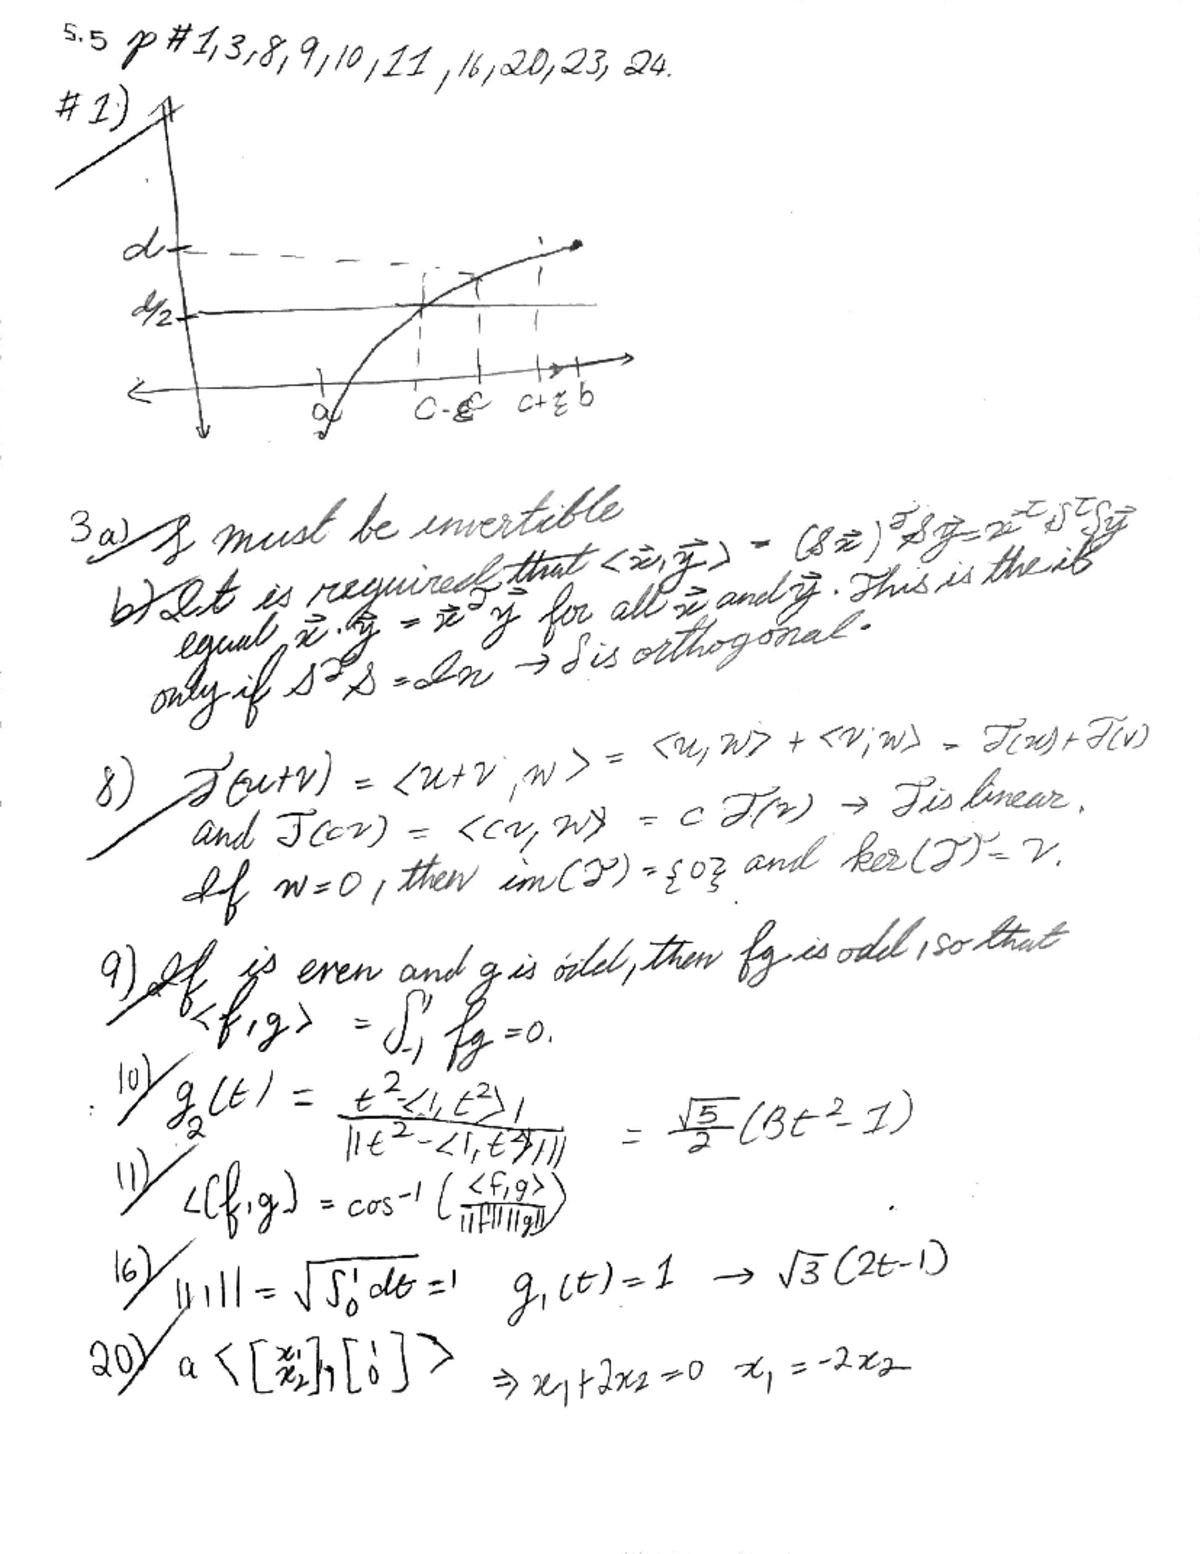 5.5 p #1,3,8,9,10,11,16,20,23,24.
#1)
d
d/2
a c-ε c c+ε b
3a) S must be invertible
b) It is required that <x⃗,y⃗> = (Sx⃗)ᵀSy⃗ = x⃗ᵀSᵀSy⃗
equal x⃗·y⃗ = x⃗ᵀy⃗ for all x⃗ and y⃗. This is the if
only if SᵀS = In → S is orthogonal.
8) T(u+v) = <u+v,w> = <u,w> + <v,w> = T(u)+T(v)
and T(cv) = <cv,w> = cT(v) → T is linear.
If w=0, then im(T)={0} and ker(T)=V.
9) If is even and g is odd, then fg is odd, so that
<f,g> = ∫₋₁¹ fg=0.
10) g₂(t) = t²-<1,t²>1 / ||t²-<1,t²>1|| = √5/2 (3t²-1)
11) ∠(f,g) = cos⁻¹(<f,g> / ||f|| ||g||)
16) ||1|| = √∫₀¹dt = 1 g₁(t)=1 → √3(2t-1)
20) a <[x₁ x₂],[1 0]> ⇒ x₁+2x₂=0 x₁=-2x₂